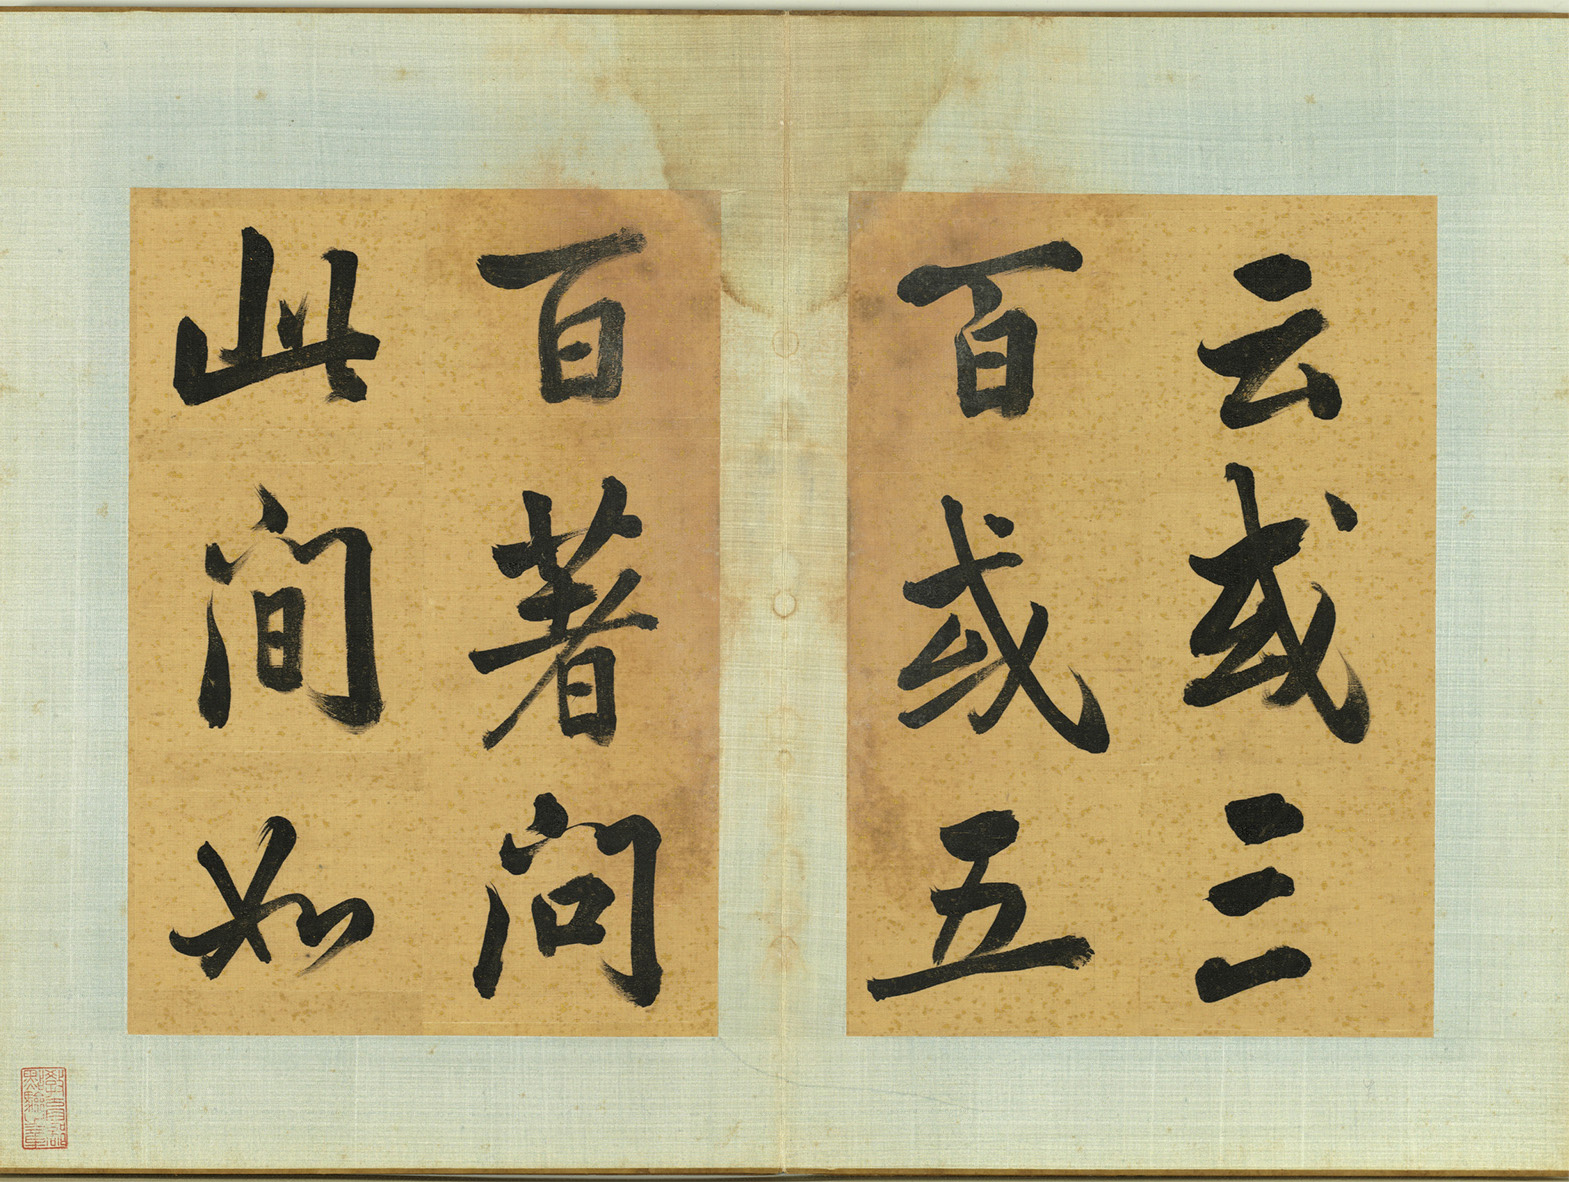 云或三
百或五
百著问
此间如